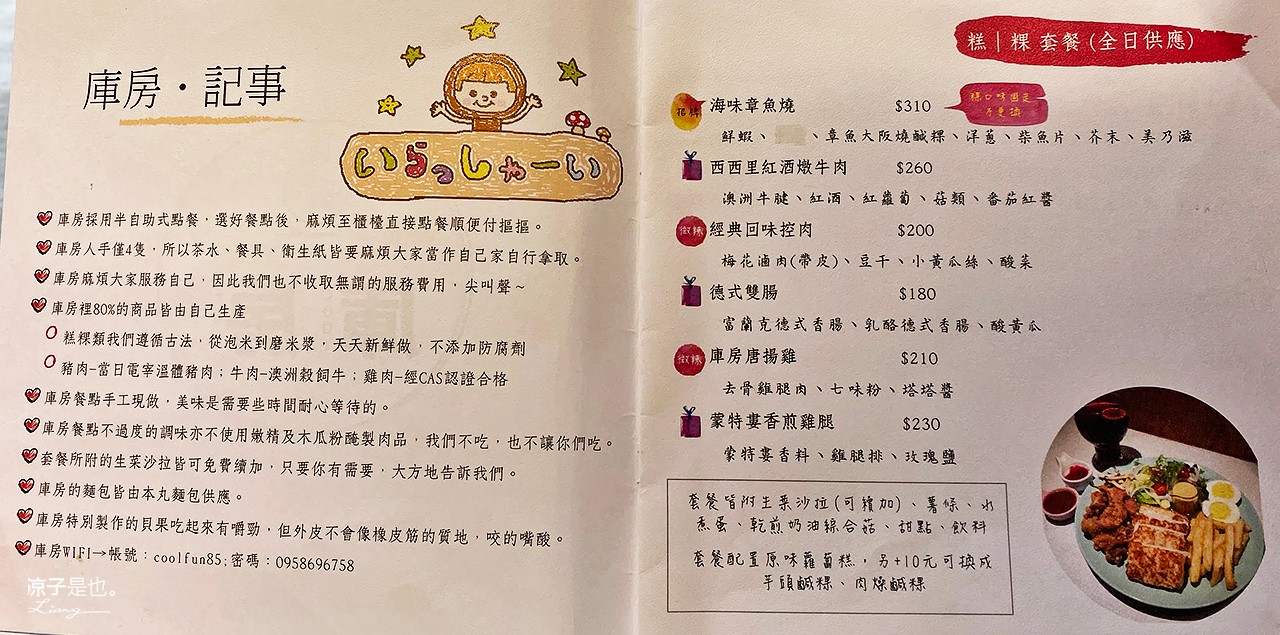 庫房・記事
いらっしゃーい
庫房採用半自助式點餐，選好餐點後，麻煩至櫃檯直接點餐順便付摳摳。
庫房人手僅4隻，所以茶水、餐具、衛生紙皆要麻煩大家當作自己家自行拿取。
庫房麻煩大家服務自己，因此我們也不收取無謂的服務費用，尖叫聲～
庫房裡80%的商品皆由自己生產
糕粿類我們遵循古法，從泡米到磨米漿，天天新鮮做，不添加防腐劑
豬肉-當日電宰溫體豬肉；牛肉-澳洲穀飼牛；雞肉-經CAS認證合格
庫房餐點手工現做，美味是需要些時間耐心等待的。
庫房餐點不過度的調味亦不使用嫩精及木瓜粉醃製肉品，我們不吃，也不讓你們吃。
套餐所附的生菜沙拉皆可免費續加，只要你有需要，大方地告訴我們。
庫房的麵包皆由本丸麵包供應。
庫房特別製作的貝果吃起來有嚼勁，但外皮不會像橡皮筋的質地，咬的嘴酸。
庫房WIFI→帳號：coolfun85;密碼：0958696758
凉子是也。
Liang
糕｜粿 套餐 (全日供應)
招牌 海味章魚燒 $310 糕口味固定
不更換
鮮蝦、 、章魚大阪燒鹹粿、洋蔥、柴魚片、芥末、美乃滋
西西里紅酒燉牛肉 $260
澳洲牛腱、紅酒、紅蘿蔔、菇類、番茄紅醬
微辣 經典回味控肉 $200
梅花滷肉(帶皮)、豆干、小黃瓜絲、酸菜
德式雙腸 $180
富蘭克德式香腸、乳酪德式香腸、酸黃瓜
微辣 庫房唐揚雞 $210
去骨雞腿肉、七味粉、塔塔醬
蒙特婁香煎雞腿 $230
蒙特婁香料、雞腿排、玫瑰鹽
套餐皆附生菜沙拉(可續加)、薯條、水
煮蛋、乾煎奶油綜合菇、甜點、飲料
套餐配置原味蘿蔔糕，另+10元可換成
芋頭鹹粿、肉燥鹹粿